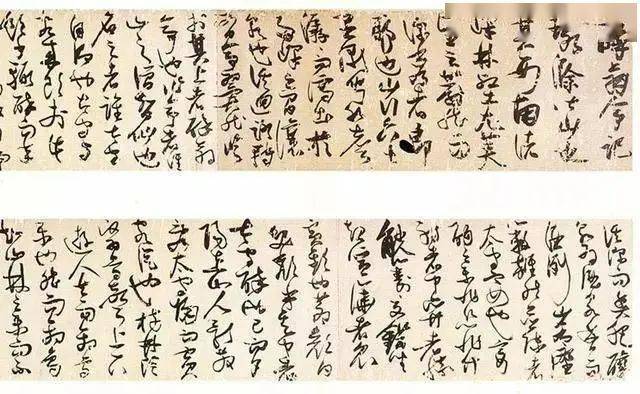 醉翁亭記
環滁皆山也
其西南諸
峰林壑尤美
望之蔚然
深秀者瑯
琊也山行六七
里漸聞水聲
潺潺而瀉出於
兩峰之間者釀
泉也峰回路轉
有亭翼然臨
於其上者醉翁
亭也作亭者誰
山之僧智仙也
名之者誰太守
自謂也太守與
客來飲於此
飲少輒醉而年
溪深而魚肥釀
泉為酒泉香而
酒洌山肴野
蔌雜然而前陳者
太守宴也宴
酣之樂非絲非竹
射者中弈者勝
觥籌交錯坐
起喧譁者眾
賓歡也蒼顏白
髮頹乎其中者
太守醉也已而夕
陽在山人影散
亂太守歸而賓
客從也樹林陰
翳鳴聲上下
遊人去而禽鳥
樂也然而禽鳥
知山林之樂而不